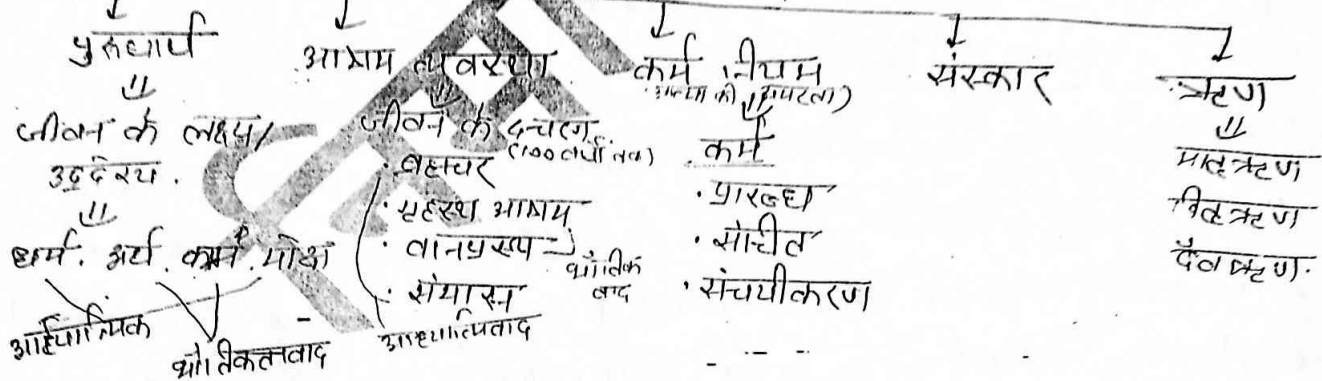 पुरुषार्थ
जीवन के लक्ष्य/
उद्देश्य.
धर्म. अर्थ. काम. मोक्ष
आध्यात्मिक
भौतिकतावाद
आश्रम व्यवस्था
जीवन के चरण
(100 वर्षों तक)
· ब्रह्मचर
· गृहस्थ आश्रम
· वानप्रस्थ
· सन्यास
भौतिक
वाद
आध्यात्मवाद
कर्म नियम
(आत्मा की अमरता)
कर्म
· प्रारब्ध
· संचित
· संचयीकरण
संस्कार
ऋण
मातृऋण
पितृऋण
दैवऋण.